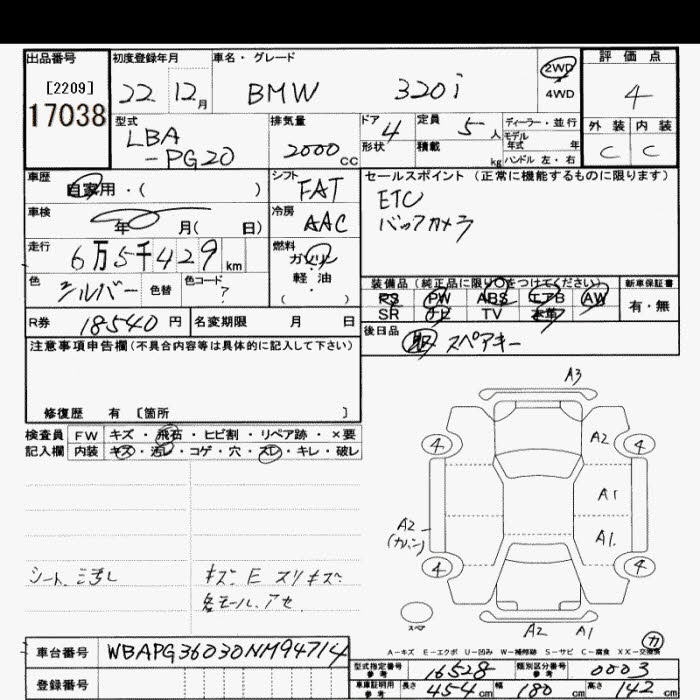 出品番号 初度登録年月 車名・グレード 2WD 評価点
[2209] 22 12月 BMW 320i 4WD 4
17038 型式 排気量 ドア 4 定員 5人 ディーラー・並行 外装 内装
LBA-PG20 2000cc 形状 積載 kg モデル年式 年 C C
ハンドル 左・右
車歴 自家用・( ) シフト FAT セールスポイント(正常に機能するものに限ります)
車検 年 月( 日) 冷房 AAC ETC
バックカメラ
走行 6万5千429km 燃料 ガソリン
色 シルバー 色替 色コード ? 軽油 ( )
装備品(純正品に限り○をつけてください) 新車保証書
PS PW ABS エアB AW 有・無
SR ナビ TV 本革
R券 18540円 名変期限 月 日 後日品 取 スペアキー
注意事項申告欄(不具合内容等は具体的に記入して下さい)
修復歴 有 〔箇所 〕
検査員 FW キズ・飛石・ヒビ割・リペア跡・×要
記入欄 内装 キズ・汚レ・コゲ・穴・スレ・キレ・破レ
A3
4 A2 4
A1
A2 A1
4 4
スペア
A2 A1
シート汚れ キズ E スリキズ
モール.アセ
A-キズ E-エクボ U-凹み W-補修跡 S-サビ C-腐食 XX-交換済
車台番号 WBAPG36030NM94714
登録番号
型式指定番号 参考 16528 類別区分番号 参考 0003
車庫証明用 参考 長さ 454cm 幅 180cm 高さ 142cm